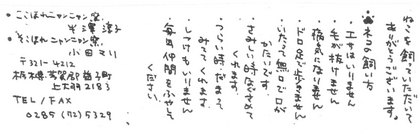 ねこを飼っていただいて
ありがとうございます。
・ネコの飼い方
エサはいりません
毛が抜けません
病気になりません
ドロ足で歩きません
いたって無口で口が
かたいです
さみしい時なぐさめて
くれます
つらい時、だまって
みててくれます
しつけもいりません
毎年仲間をふやして
ください。
・ここほれニャンニャン窯
半澤淳子
・そこほれニャンニャン窯
小田マリ
〒321-4212
栃木県芳賀郡益子町
上大羽2183
TEL/FAX
0285(72)5329